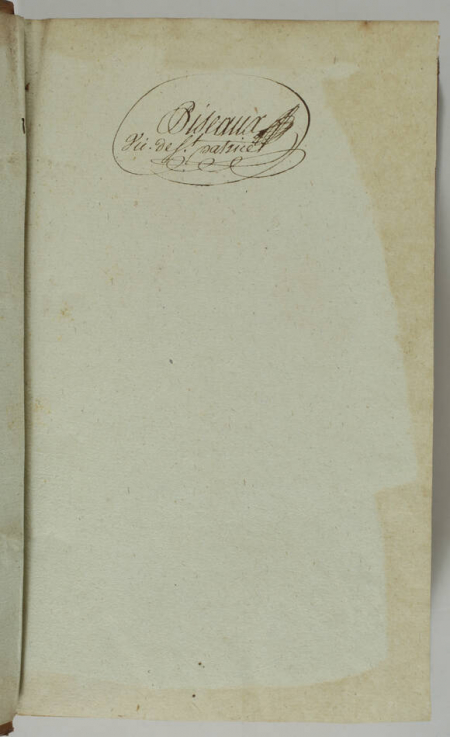 Biseaux
Vic. de St. patrice